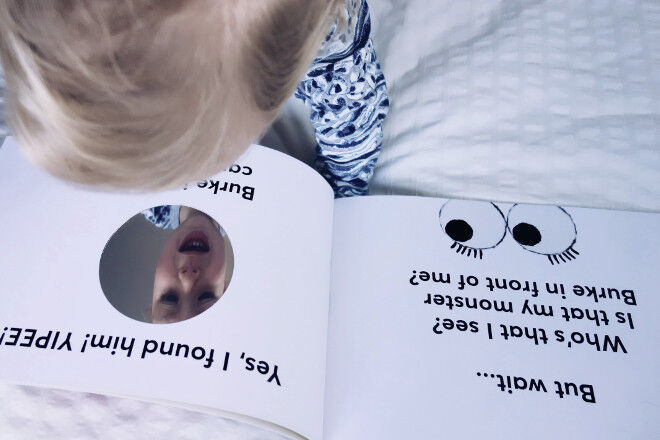 But wait...
Who's that I see?
Is that my monster
Burke in front of me?
Yes, I found him! YIPEE!
Burke